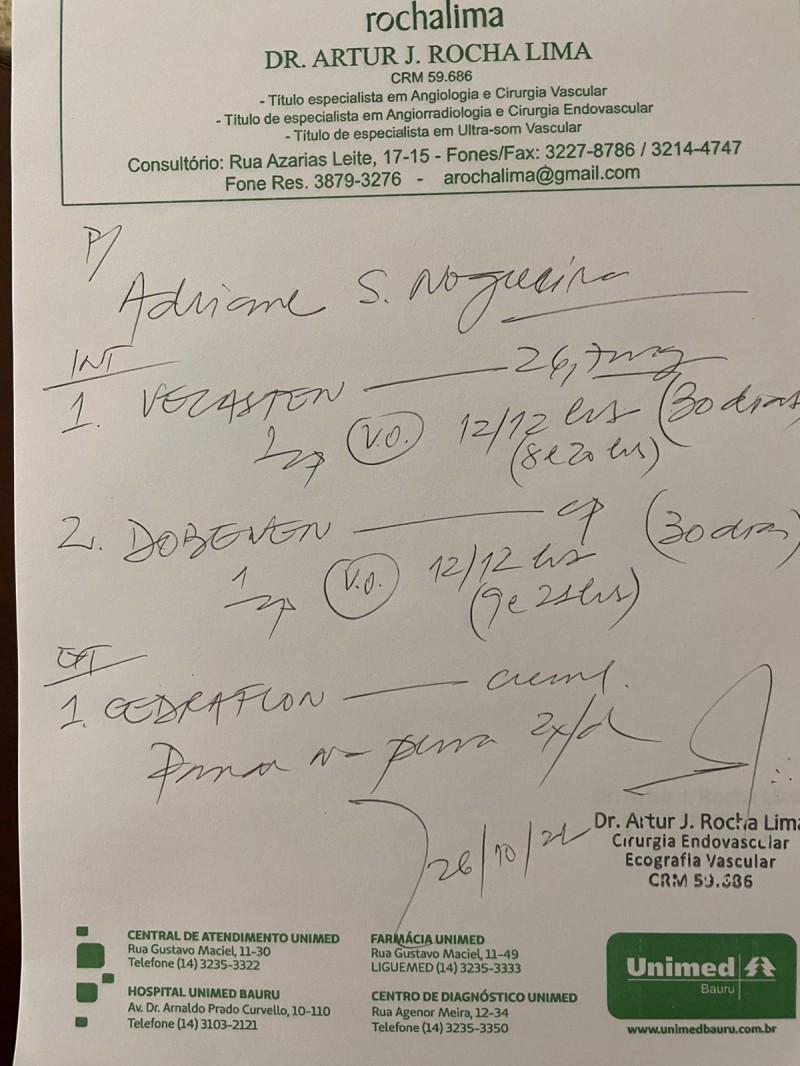 rochalima
DR. ARTUR J. ROCHA LIMA
CRM 59.686
- Título especialista em Angiologia e Cirurgia Vascular
- Título de especialista em Angiorradiologia e Cirurgia Endovascular
- Título de especialista em Ultra-som Vascular
Consultório: Rua Azarias Leite, 17-15 - Fones/Fax: 3227-8786 / 3214-4747
Fone Res. 3879-3276 - arochalima@gmail.com
P/
Adriane S. Nogueira
INT
1. VECASTEN 26,7mg
1 cp V.O. 12/12 hrs (30 dias
(8 e 20 hrs)
2. DOBEVEN cp (30 dias)
1 cp V.O. 12/12 hs
(9 e 21 hrs)
EXT
1. GEDRAFLON creme.
Passar na perna 2x/d
26/10/21
Dr. Artur J. Rocha Lima
Cirurgia Endovascular
Ecografia Vascular
CRM 59.686
CENTRAL DE ATENDIMENTO UNIMED
Rua Gustavo Maciel, 11-30
Telefone (14) 3235-3322
HOSPITAL UNIMED BAURU
Av. Dr. Arnaldo Prado Curvello, 10-110
Telefone (14) 3103-2121
FARMÁCIA UNIMED
Rua Gustavo Maciel, 11-49
LIGUEMED (14) 3235-3333
CENTRO DE DIAGNÓSTICO UNIMED
Rua Agenor Meira, 12-34
Telefone (14) 3235-3350
Unimed
Bauru
www.unimedbauru.com.br